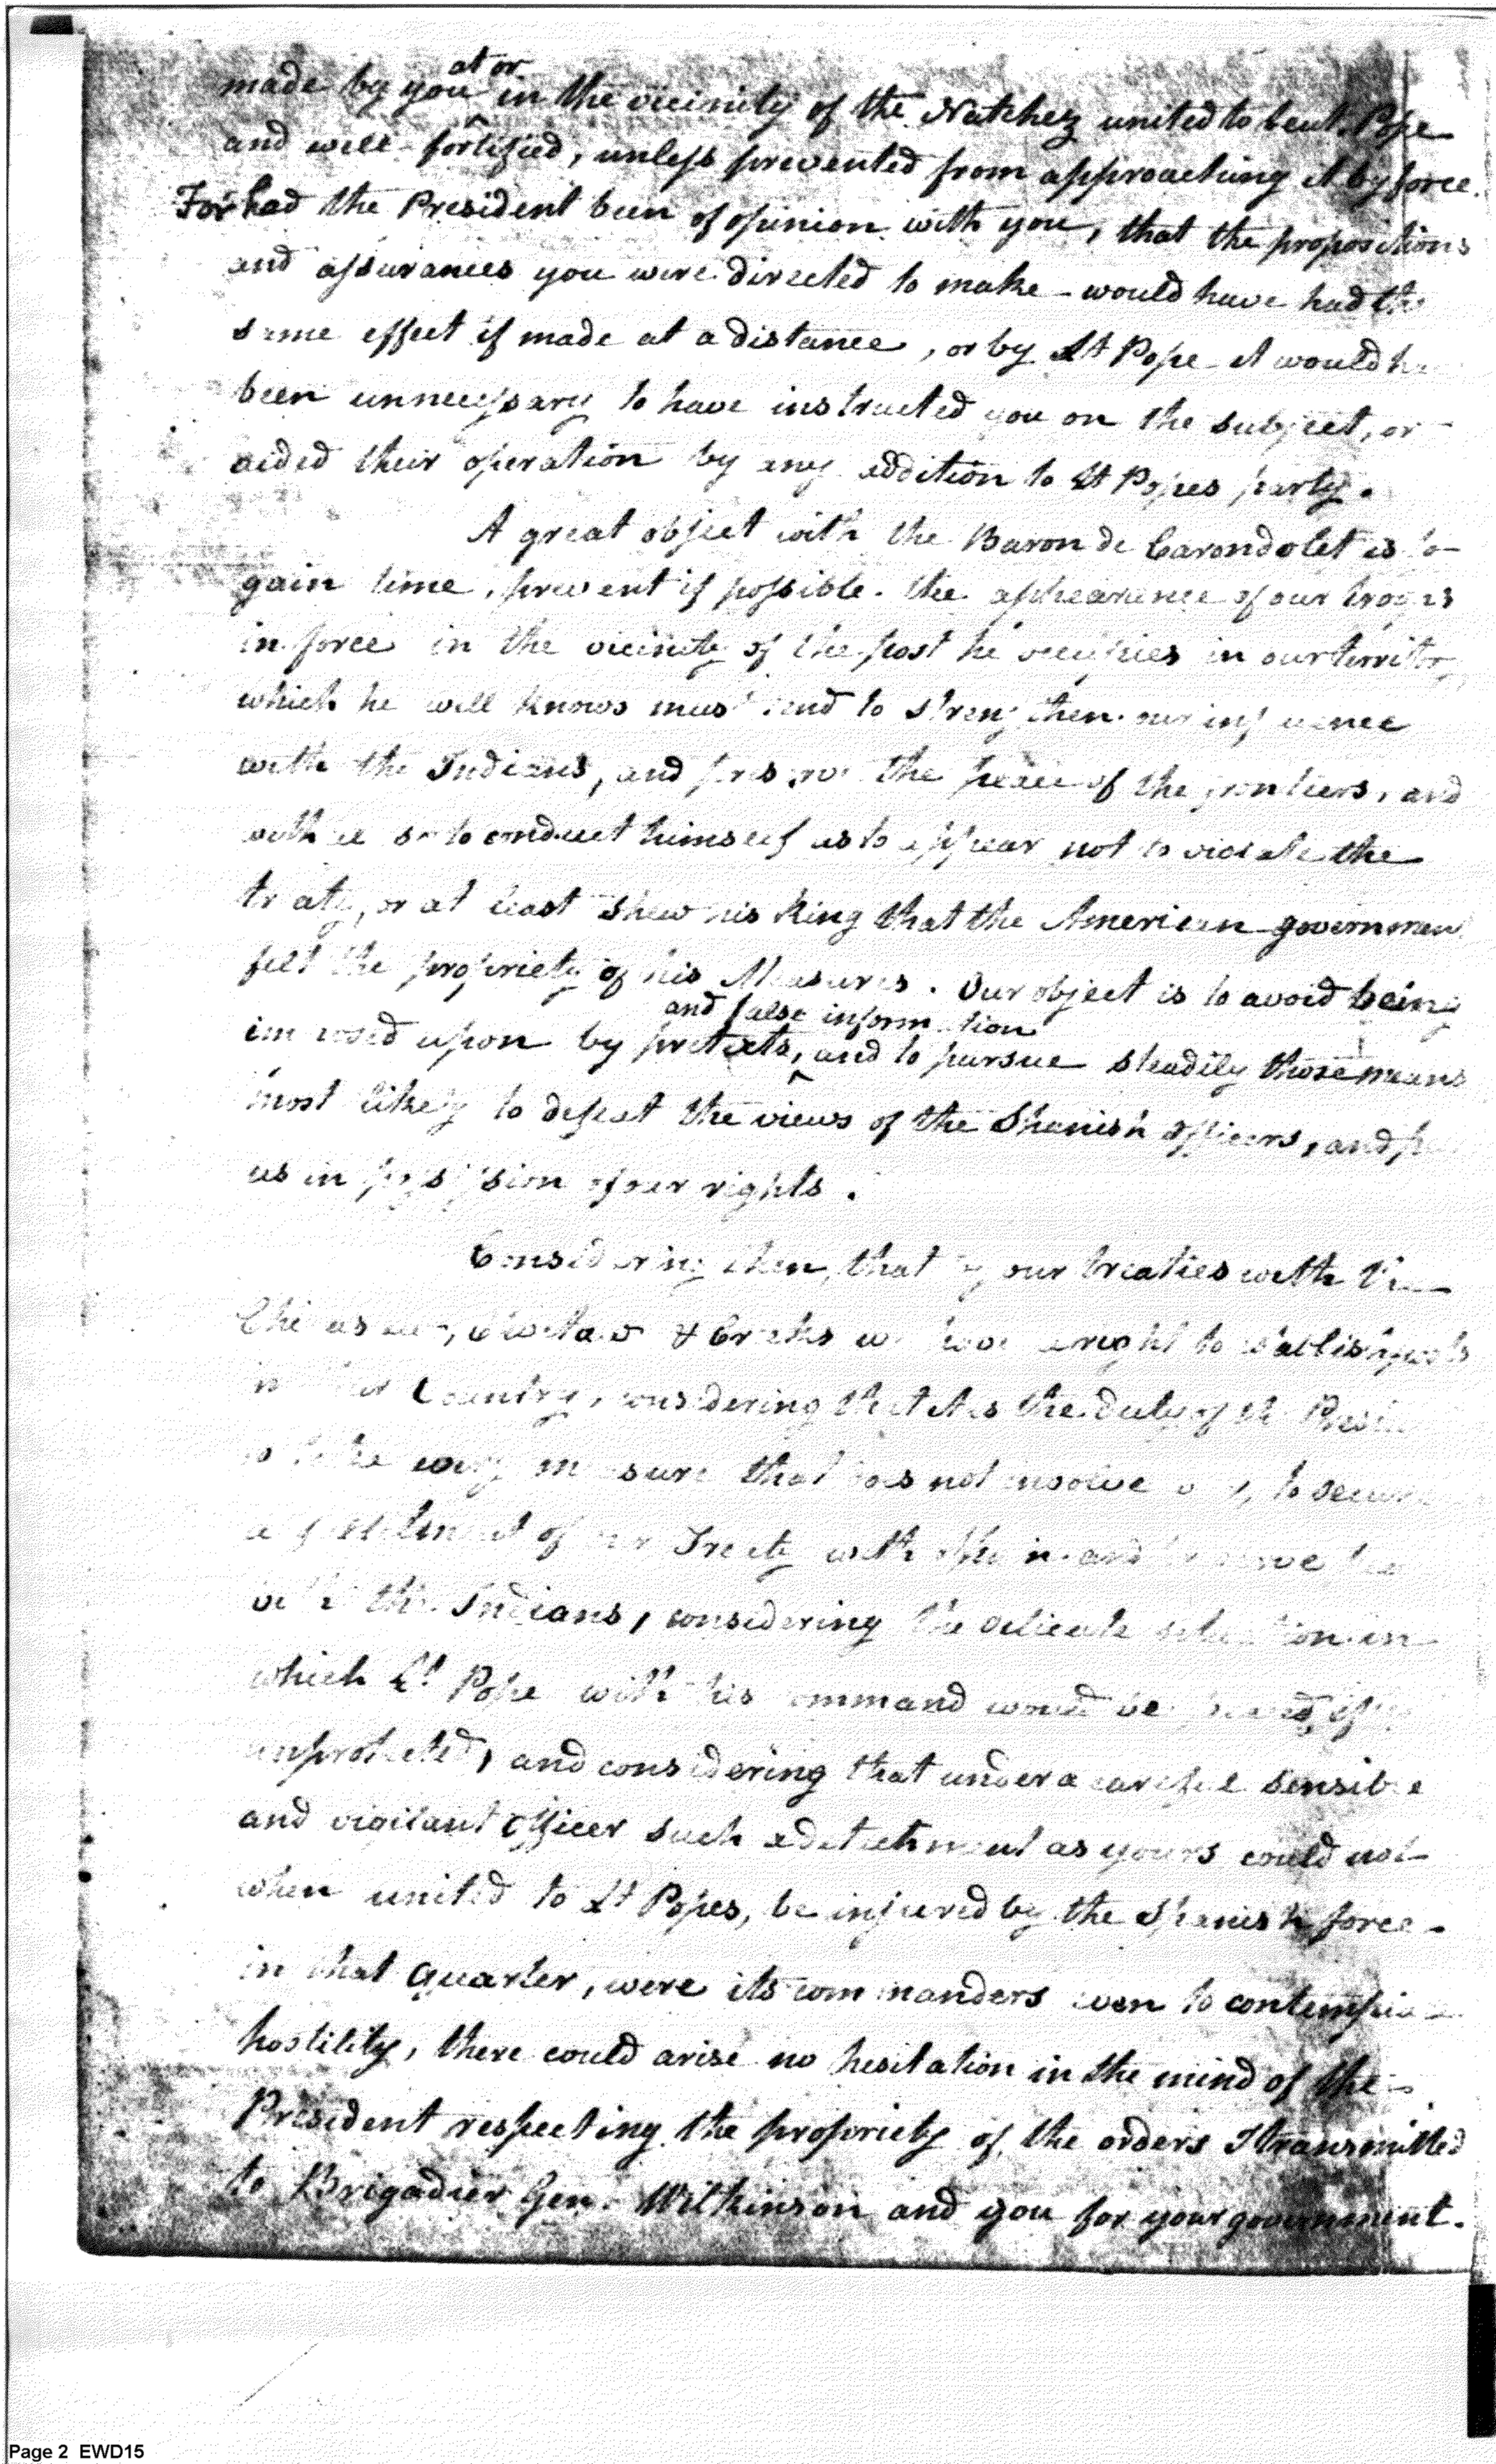 made by you at or in the vicinity of the Natchez united to Leut. Pope
and well fortified, unless prevented from approaching it by force.
For had the President been of opinion with you, that the propositions
and assurances you were directed to make would have had the
same effect if made at a distance, or by Lt Pope it would
been unnecessary to have instructed you on the subject, or
aided their operation by any addition to Lt Popes party.
A great object with the Baron de Carondolet is to
gain time, prevent if possible. the appearance of our troops
in force in the vicinity of the post he occupies in our territory
which he well knows must tend to strengthen our influence
with the Indians, and preserve the peace of the frontiers, and
so to conduct himself as to appear not to violate the
treaty, or at least shew his King that the American government
felt the propriety of his Measures. Our object is to avoid being
imposed upon by pretexts, and false information and to pursue steadily those means
most likely to defeat the views of the Spanish officers, and
us in possession of our rights.
Considering then, that by our treaties with the
Choctaw & Creeks we have a right to establish posts
in Country, considering that it is the duty of the
measure that does not involve to secure
of our Treaty with
the Indians, considering the delicate situation in
which Lt Pope with his command would be
unprotected, and considering that under a careful sensible
and vigilant officer such a detachment as yours could not
when united to Lt Popes, be injured by the Spanish force
in that quarter, were its commanders even to contemplate
hostility, there could arise no hesitation in the mind of the
President respecting the propriety of the orders I transmitted
to Brigadier Gen. Wilkinson and you for your government.
Page 2 EWD15